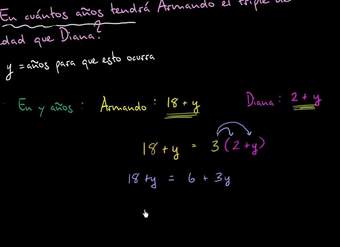 En cuántos años tendrá Armando el triple de
dad que Diana?
y = años para que esto ocurra
En y años: Armando: 18 + y Diana: 2 + y
18 + y = 3 (2 + y)
18 + y = 6 + 3y